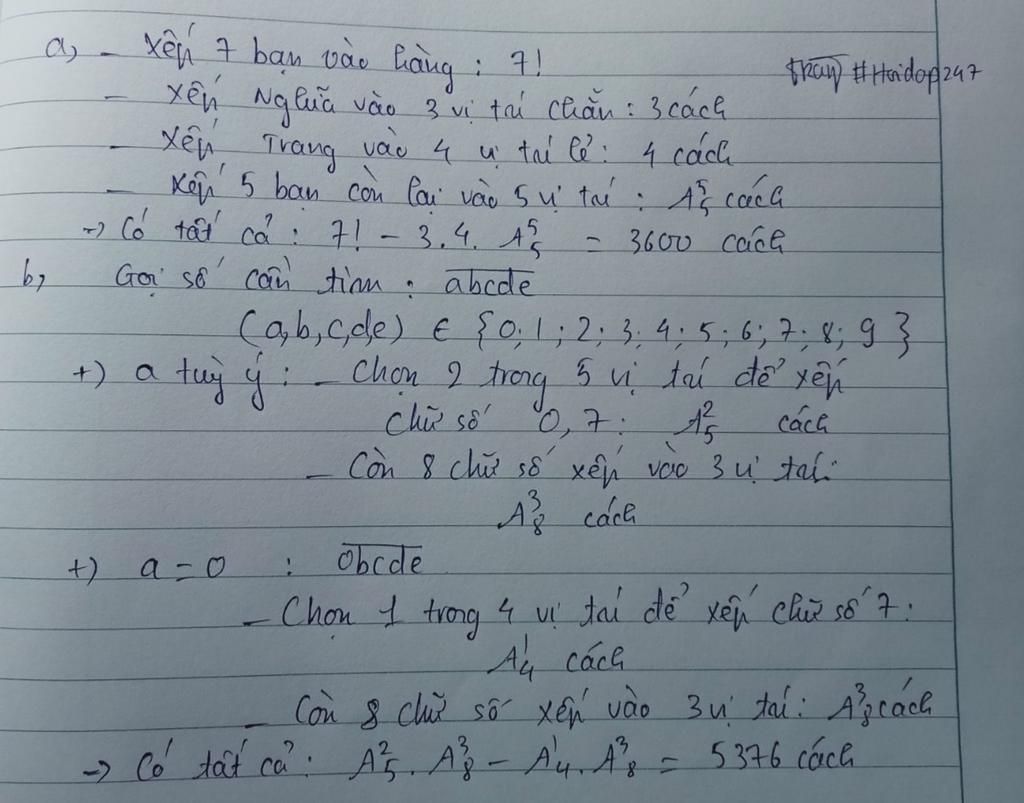 a, - Xếp 7 bạn vào hàng : 7!
tray #Hoidap247
- Xếp Nghĩa vào 3 vị trí chẵn : 3 cách
- Xếp Trang vào 4 vị trí lẻ : 4 cách
- Xếp 5 bạn còn lại vào 5 vị trí : A⁵₅ cách
-> Có tất cả : 7! - 3.4. A⁵₅ = 3600 cách
b, Gọi số cần tìm : abcde
(a,b,c,d,e) ∈ {0; 1; 2; 3; 4; 5; 6; 7; 8; 9}
+) a tuỳ ý : - Chọn 2 trong 5 vị trí để xếp
chữ số 0, 7 : A²₅ cách
- Còn 8 chữ số xếp vào 3 vị trí:
A³₈ cách
+) a = 0 : 0bcde
- Chọn 1 trong 4 vị trí để xếp chữ số 7 :
A¹₄ cách
- Còn 8 chữ số xếp vào 3 vị trí : A³₈ cách
-> Có tất cả : A²₅ . A³₈ - A¹₄ . A³₈ = 5376 cách